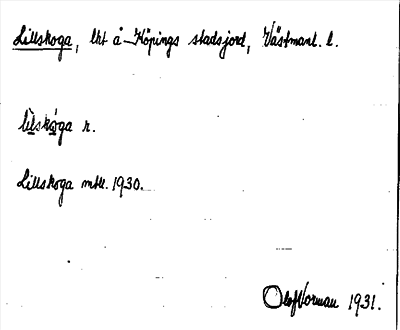 Lillskoga, lht å Köpings stadsjord, Västmanl. l.
lìlskóga r.
Lillskoga mtl. 1930.
Olof Vorman 1931.